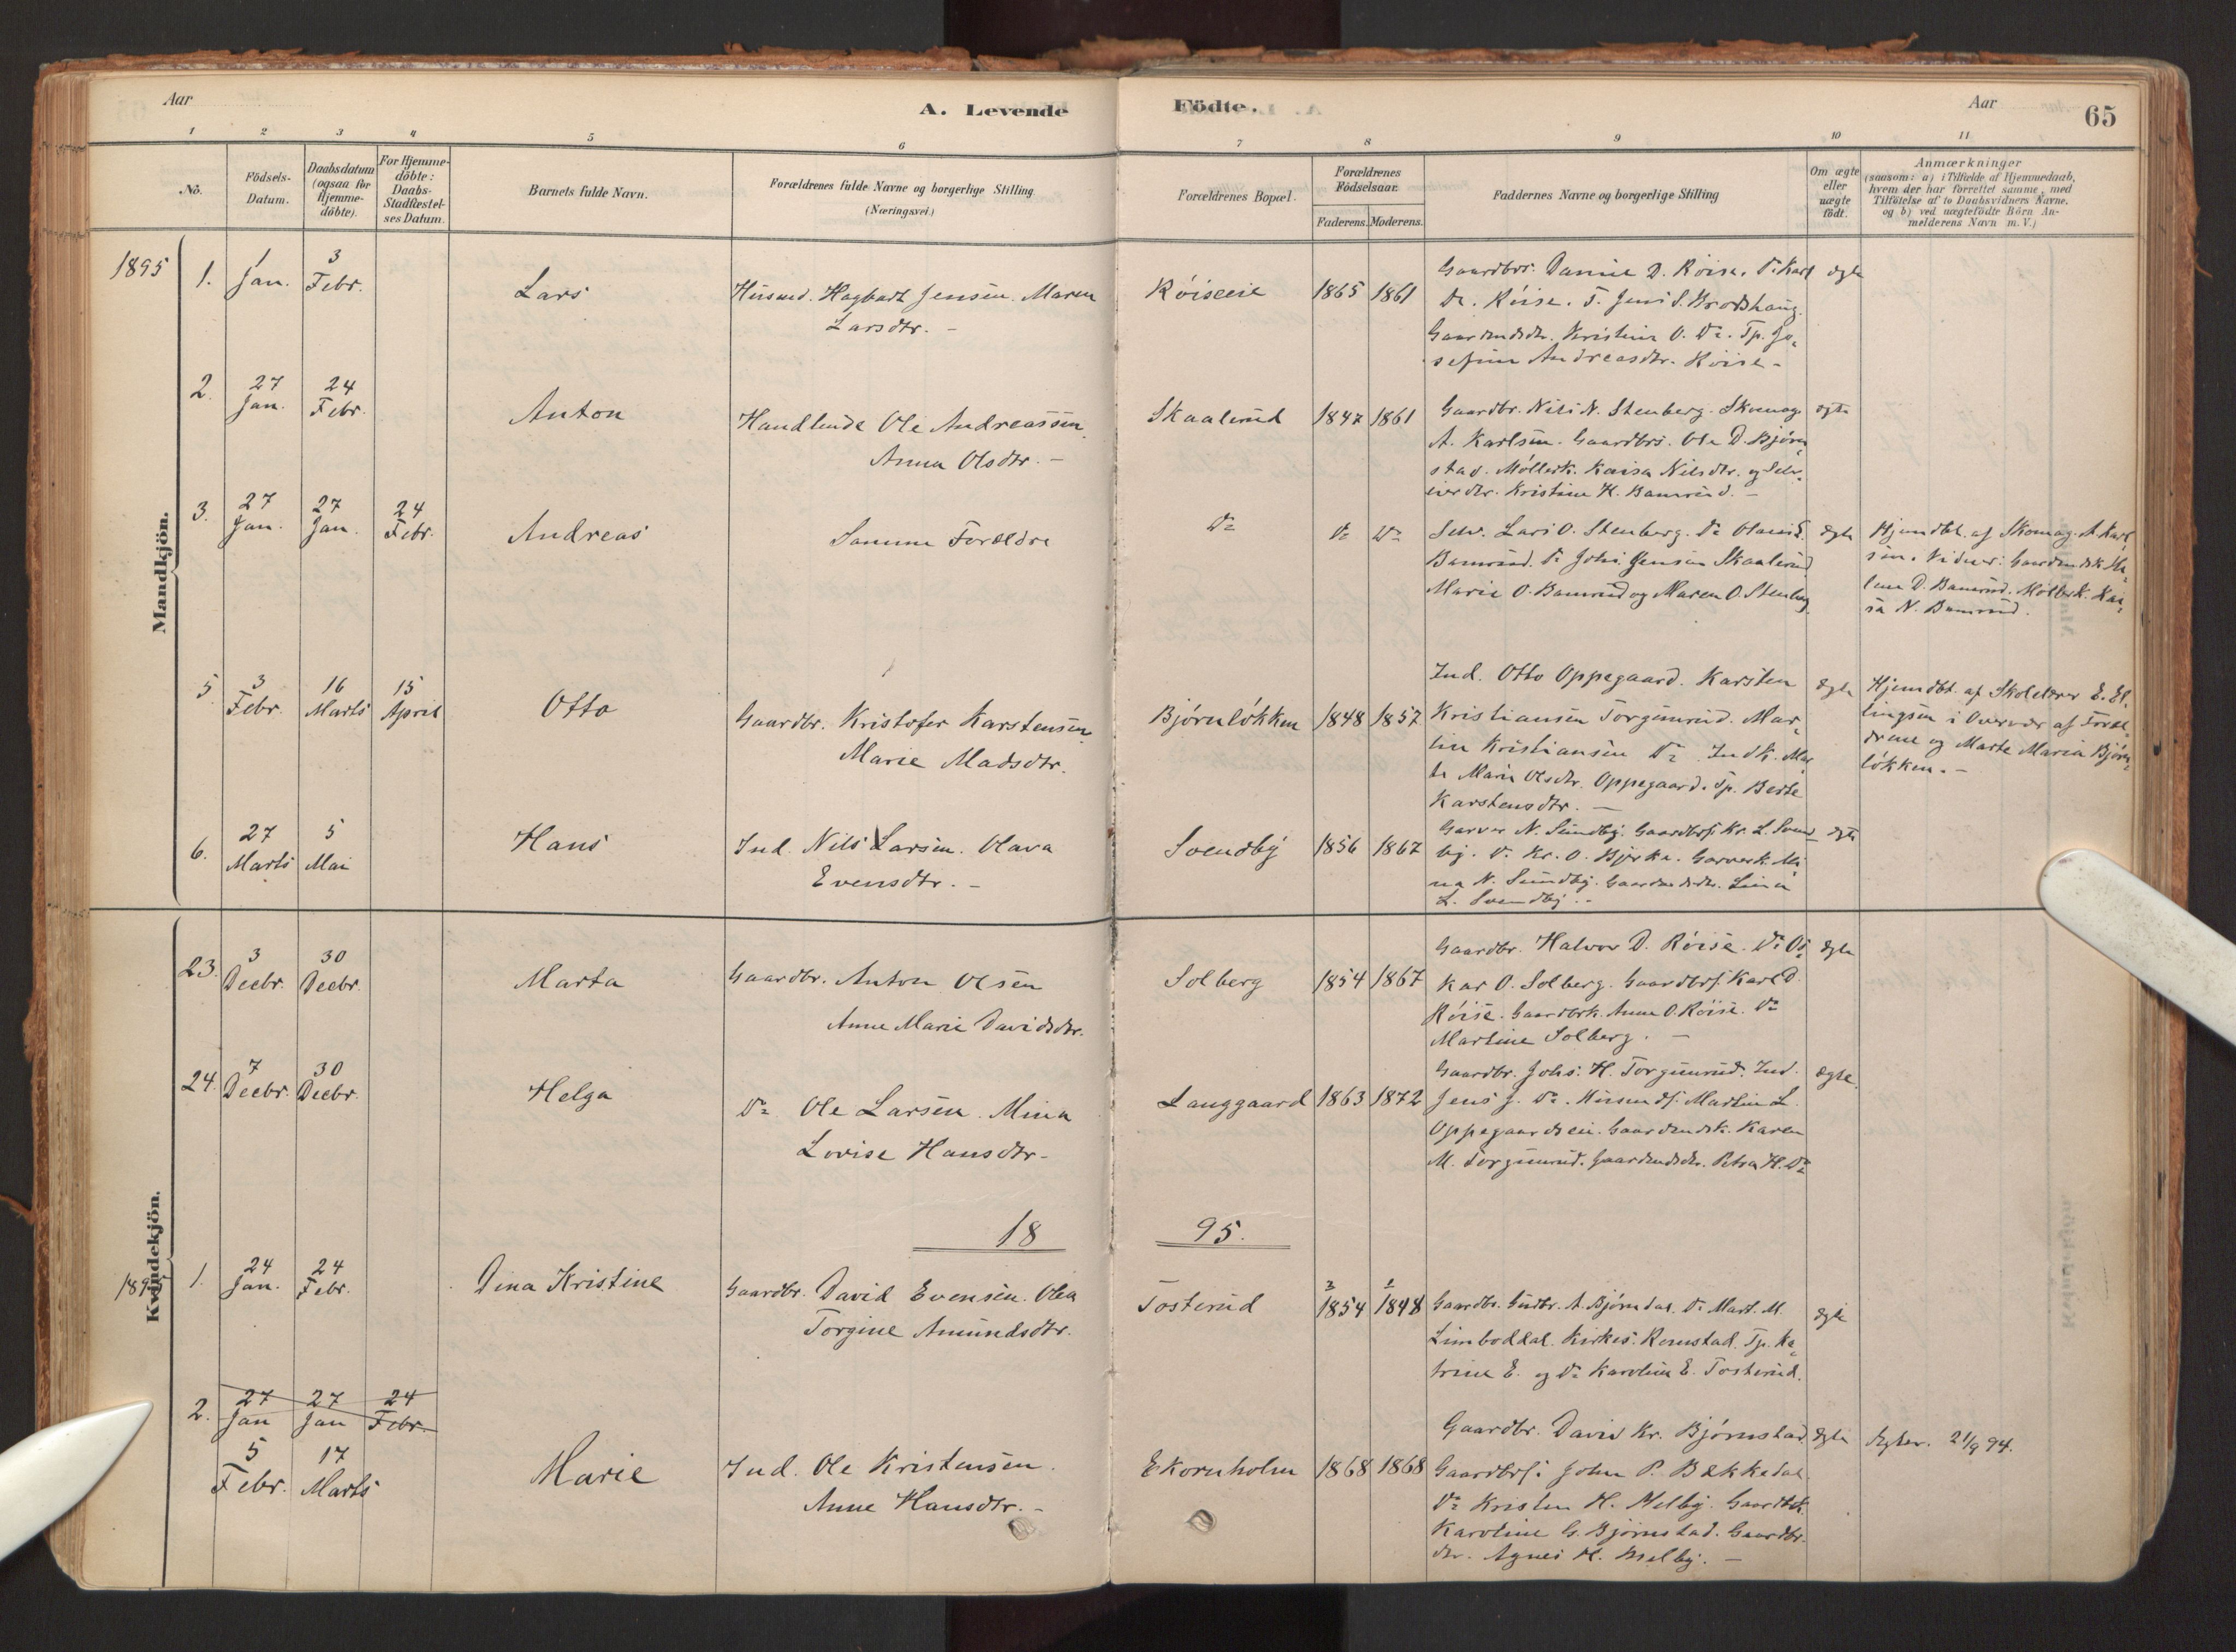 Aar
A. Levende
Födte.
Aar
65
1
2
3
4
5
6
7
8
9
10
11
No.
Födsels-
Datum.
Daabsdatum
(ogsaa for
Hjemme-
döbte).
For Hjemme-
döbte:
Daabs-
Stadfæstel-
ses Datum.
Barnets fulde Navn.
Forældrenes fulde Navne og borgerlige Stilling
(Næringsvei.)
Forældrenes Bopæl.
Forældrenes
Födselsaar.
Faderens.
Moderens.
Faddernes Navne og borgerlige Stilling
Om ægte
eller
uægte
födt.
Anmærkninger
(saasom: a) i Tilfælde af Hjemmedaab,
hvem der har forrettet samme, med
Tilföielse af to Daabsvidners Navne.
og b) ved uægtefödte Börn An-
melderens Navn m. V.)
Mandkjön.
1895
1.
1
Jan.
3
Febr.
Lars
Husmd. Hagbart Jensen. Maren
Larsdtr. -
Röiseeie
1865
1861
Gaardbr. D. Röise. Do Karl
D. Röise. T. Jens S.
Kristine O. Do. Tp. Jo-
sefine Andreasdtr. Röise -
ægte
2.
27
Jan.
24
Febr.
Anton
Handlende Ole Andreassen
Anna Olsdtr. -
Skaalerud
1847
1861
Gaardbr. Nils N. Stenberg. Skomag.
A. Karlsen. Gaardbr. Ole D. Björn-
stad. Möllerk. Kaisa Nilsdtr. og Selv-
eierdtr. Kristine H. Bamrud. -
ægte
3.
27
Jan.
27
Jan.
24
Febr.
Andreas
Samme Forældre
Do
Do
Do
Selv. Lars O. Stenberg. Do
Bamrud. Do Johs. Jensen Skaalerud
Marie O. Bamrud og Maren O. Stenberg
ægte
Hjemdbt. af Skomag. A. Karl-
sen. Vidner:
lene D. Bamrud. Möllerk. Kai-
sa N. Bamrud.
5
3
Febr.
16
Marts
15
April
Otto
Gaardbr. Kristofer Karstensen
Marie Madsdtr.
Björnlökken
1848
1857
Ind. Otto Oppegaard. Karsten
Kristiansen Torgunrud. Mar-
tin Kristiansen Do. Indk. Mar-
te Marie Olsdtr. Oppegaard. Tp. Berte
Karstensdtr. -
ægte
Hjemdbt. af Skolelærer E. El-
lingsen i Overvær af Foræl-
drene og Marte Maria Björn-
lökken. -
6.
27
Marts
5
Mai
Hans
Ind. Nils Larsen. Olava
Evensdtr. -
Svendby
1856
1867
Garver N. Sundby. Gaardbrs. Kr. L. Svend-
by. Do Kr. O. Bjerke. Garverk. Mi-
na N. Sundby. Lina
L. Svendby. -
ægte
Kvindekjön.
23.
3
Decbr.
30
Decbr.
Marta
Gaardbr. Anton Olsen
Anne Marie Davidsdtr.
Solberg
1854
1867
Gaardbr. Halvor D. Röise. Do Os-
kar O. Solberg. Gaardbrs. Karl D.
Röise. Gaardbrk. Anne O. Röise. Do
Martine Solberg. -
ægte
24.
7
Decbr.
30
Decbr.
Helga
Do Ole Larsen. Mina
Lovise Hansdtr. -
Langgaard
1863
1872
Gaardbr. Johs. H. Torgunrud. Ind.
Jens J. Do. Husmds. Martin L.
Oppegaardseie. Gaardmdsk. Karen
M. Torgunrud. Gaardmdsdtr. Petra H. Do
ægte.
18
95.
1895
1.
24
Jan.
24
Febr.
Dina Kristine
Gaardbr. David Evensen. Olea
Torgine Amundsdtr.
Tosterud
3
1854
1
1848
Gaardbr. Gudbr. A. Björndal. Do Mart. M.
Limboddal. Kirkes. Romstad. Tp. Ka-
trine E. og Do Karoline E. Tosterud.
ægte
2.
27
Jan
27
Jan
24
Febr.
5
Febr.
17
Marts
Marie
Ind. Ole Kristensen.
Anne Hansdtr. -
Ekornholm
1868
1868
Gaardbr. David Kr. Björnstad
Gaardbrs. Johan P. Bækkedal
Do Kristen H. Melby. Gaardbrk.
Karoline G. Björnstad. Gaardbr.
dtr. Agnes H. Melby. -
ægte
Ægtev. 21/9 94.